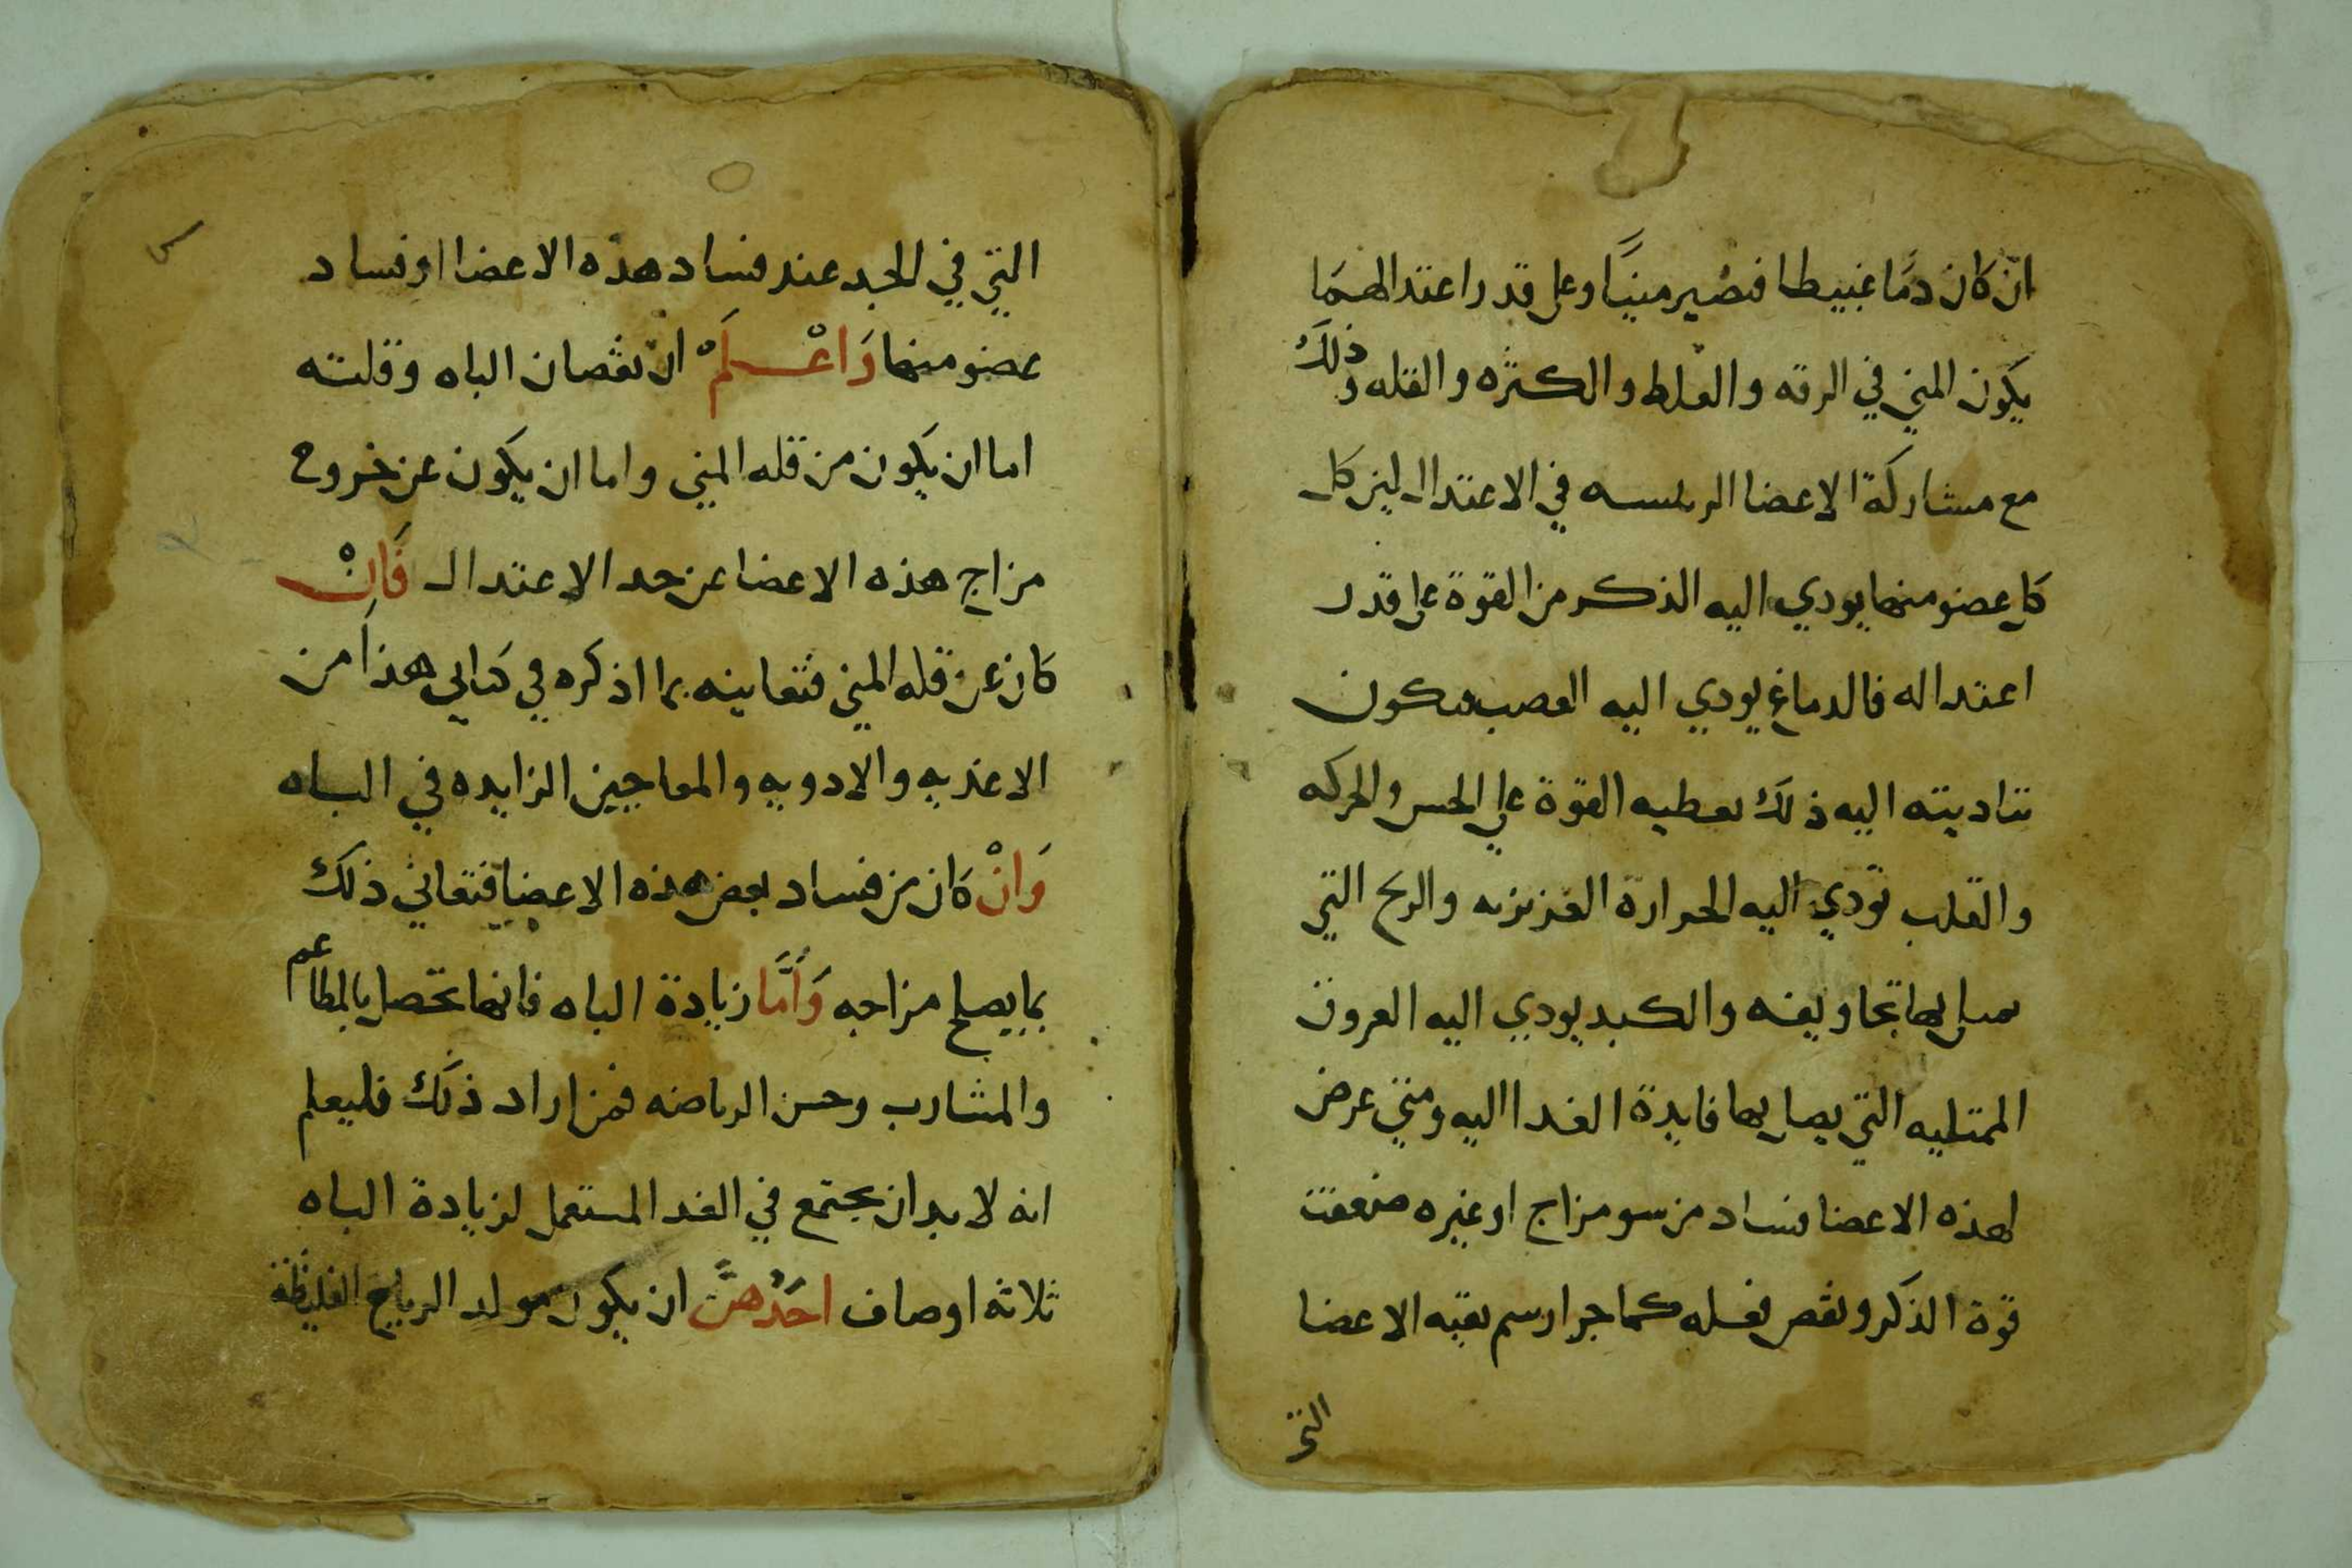 ان كان دمًا غبيطا فتصير منيًا وعلى قدر اعتدالهما
يكون المني في الرقه والغلط والكثره والقله وذلك
مع مشاركة الاعضا الرئسه في الاعتدال لين كل
كل عضو منها يودي اليه الذكر من القوة على قدر
اعتداله فالدماغ يودي اليه العصب فيكون
تناديته اليه ذلك يعطيه القوة على الحس والحركه
والقلب تؤدي اليه الحرارة الغزيزيه والريح التي
بها تجاويفه والكبد يودي اليه العروق
الممتليه التي يصل بها فايدة الغدا اليه ومتي عرض
لهذه الاعضا فساد من سو مزاج او غيره ضعفت
قوة الذكر ونقص فعله كما جرا رسم بقيه الاعضا
التي
التي في الجسد عند فساد هذه الاعضا او فساد
عضو منها وَاعْلَمْ ان نقصان الباه وقلته
اما ان يكون من قله المني واما ان يكون عن خروج
مزاج هذه الاعضا عن حد الاعتدال فَاِنْ
كان عن قله المني فتعاينه بما اذكره في كتابي هذا من
الاغذيه والادويه والمعاجين الزايده في الباه
وَانْ كان من فساد بعض هذه الاعضا فتعاني ذلك
بما يصلح مزاجه وَأَمَّا زيادة الباه فانها تحصل بالمطاعم
والمشارب وحسن الرياضه فمن اراد ذلك فليعلم
انه لا بد ان يجتمع في الغدا المستعمل لزيادة الباه
ثلاثه اوصاف احَدُهنَّ ان يكون مولد الرياح الغليظة